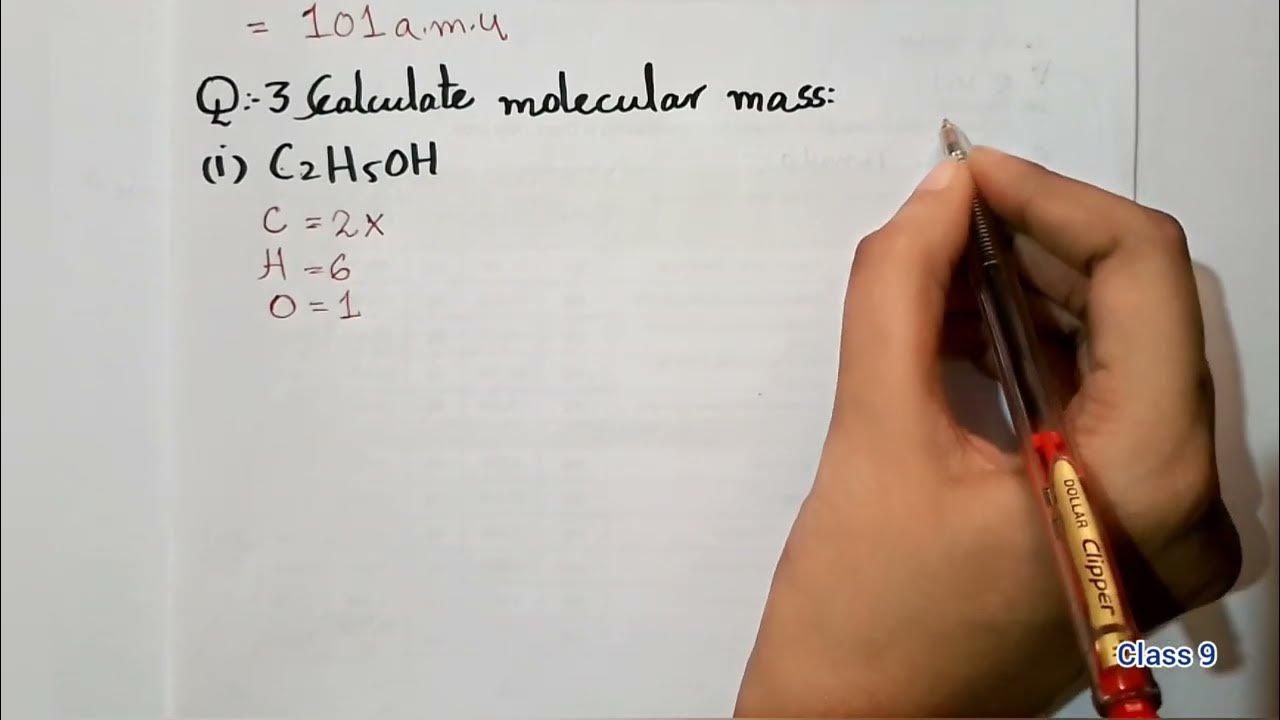 = 101 a.m.u
Q:-3 Calculate molecular mass:
(i) C₂H₅OH
C = 2x
H = 6
O = 1
DOLLAR Clipper
Class 9